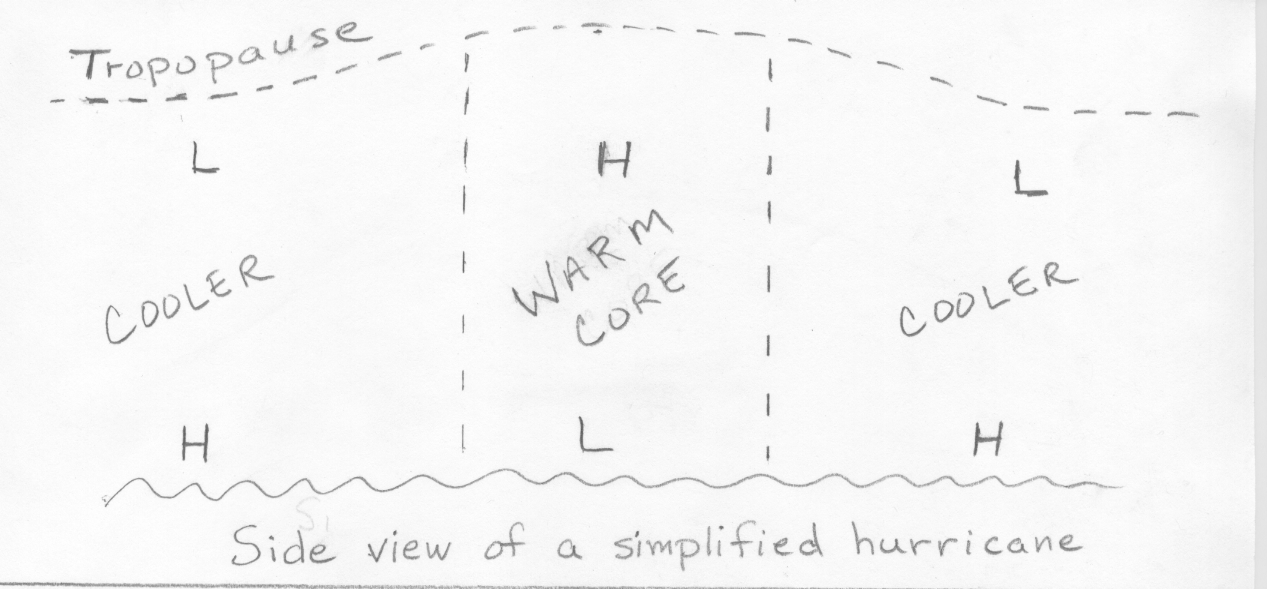 Tropopause
L H L
COOLER WARM CORE COOLER
H L H
Side view of a simplified hurricane